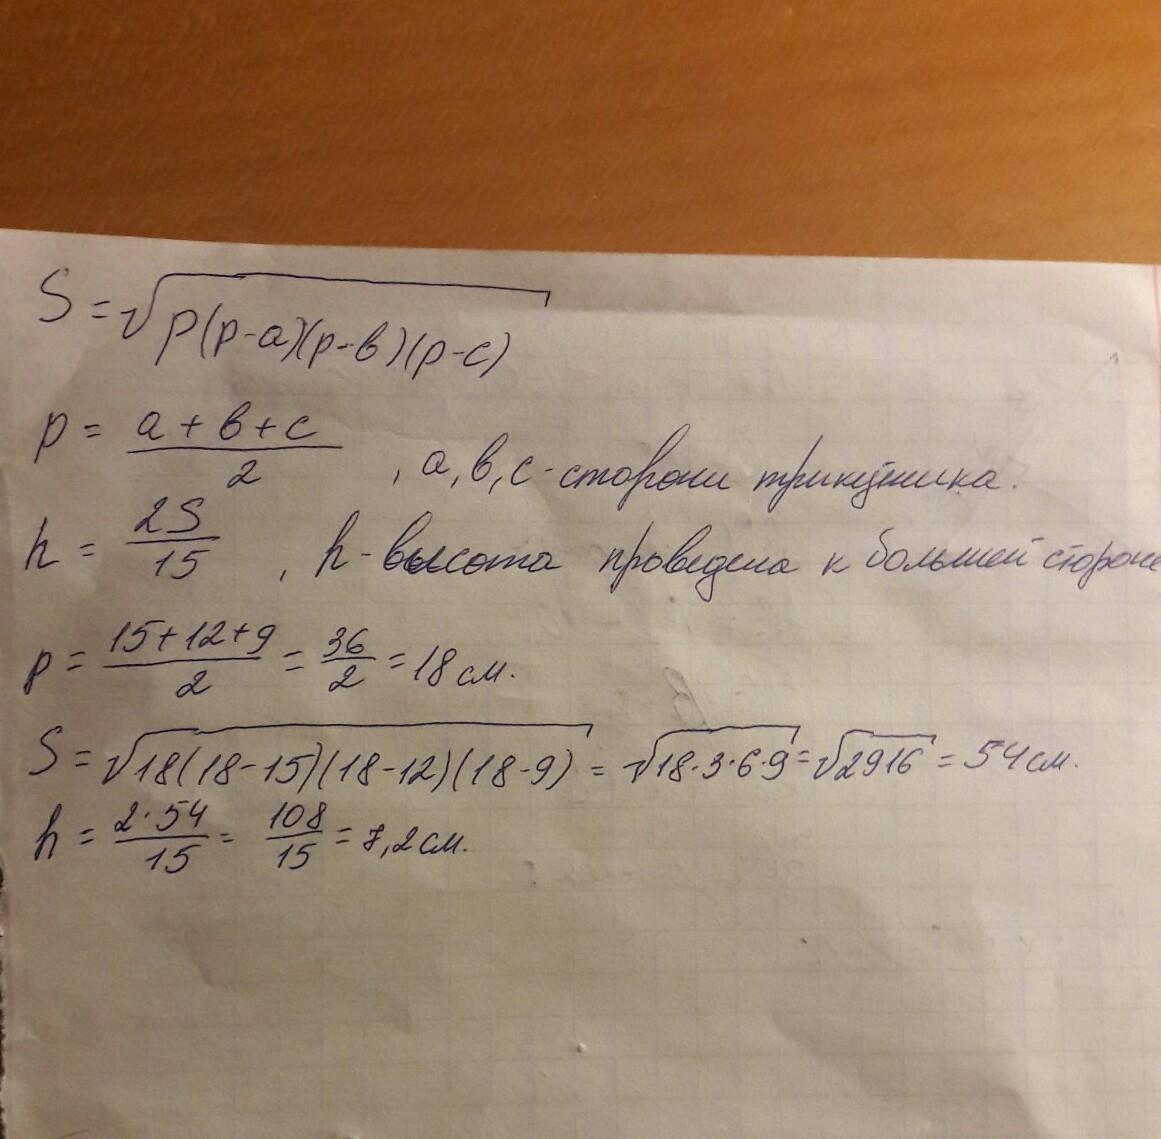 S = √p(p-a)(p-в)(p-c)
p = a + в + c / 2 , a, в, c - сторони трикутника.
h = 2S / 15 , h - высота проведена к большей стороне
p = 15+12+9 / 2 = 36 / 2 = 18 см.
S = √18(18-15)(18-12)(18-9) = √18·3·6·9 = √2916 = 54 см.
h = 2·54 / 15 = 108 / 15 = 7,2 см.